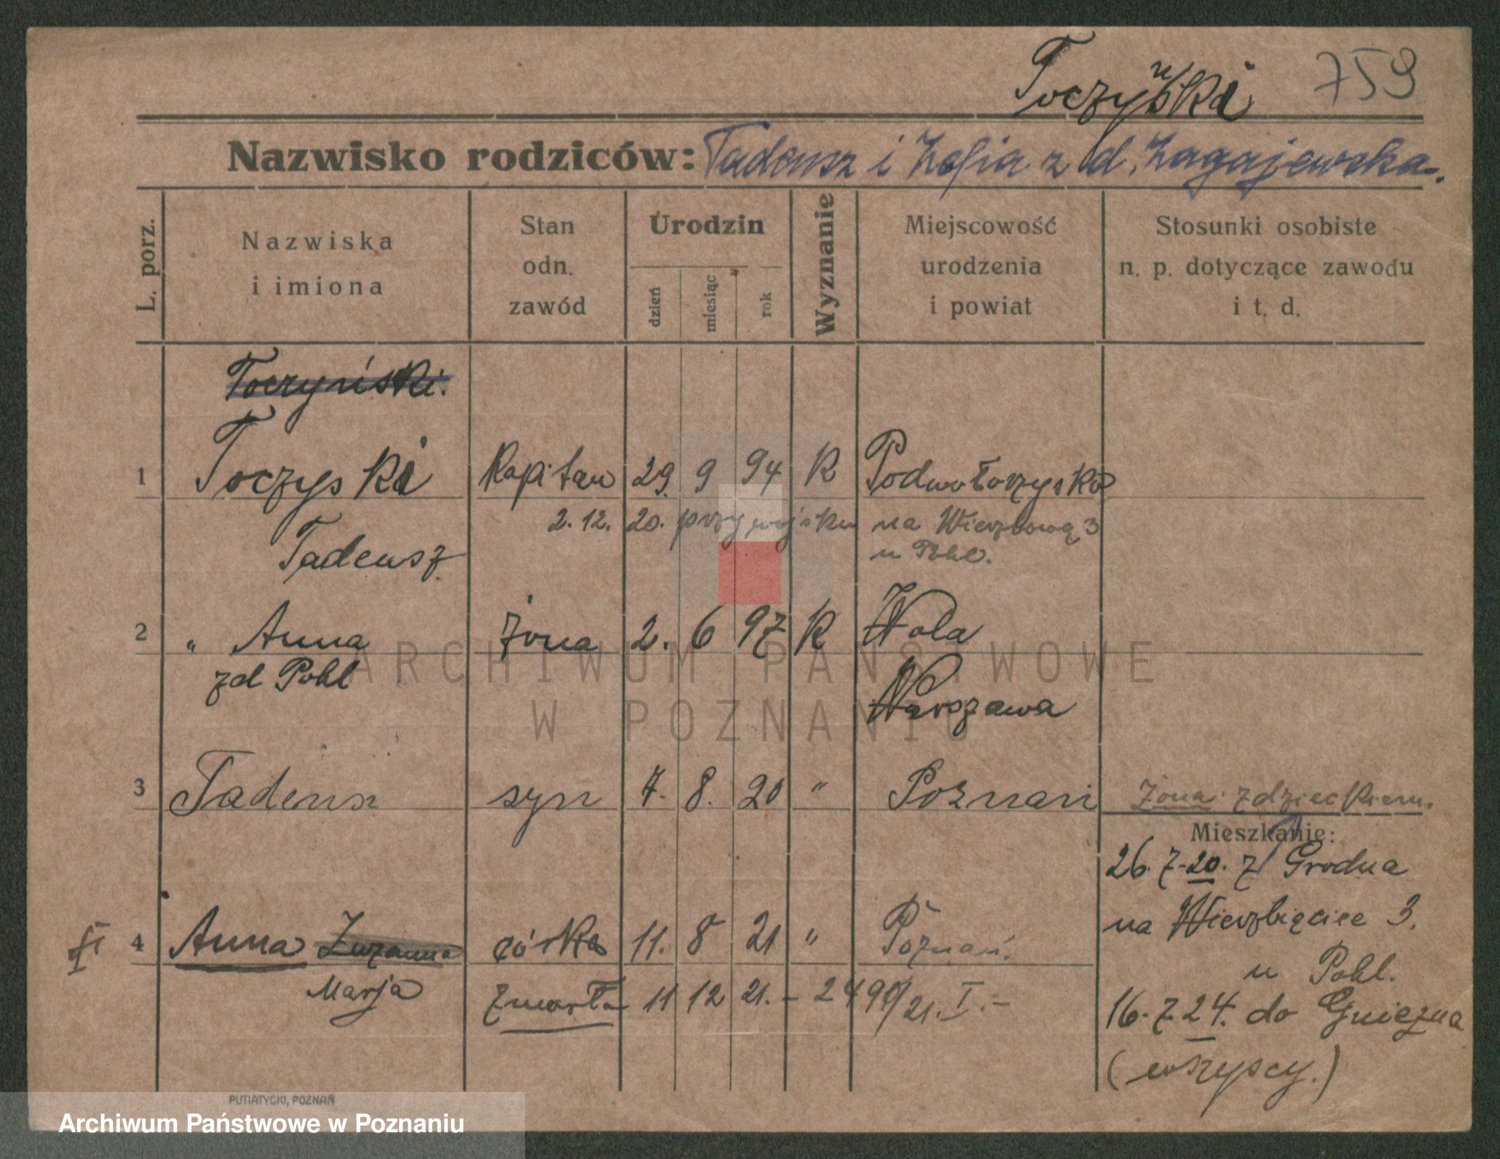 Toczyski 759
Nazwisko rodziców: Tadeusz i Zofia z d. Zagajewska.
L. porz.
Nazwiska i imiona
Stan odn. zawód
Urodzin
dzień
miesiąc
rok
Wyznanie
Miejscowość urodzenia i powiat
Stosunki osobiste n. p. dotyczące zawodu i t. d.
Toczyński.
1 Toczyski Kapitan 29. 9 94 K Podwołoczyska
2. 12. 20. przy wojsku na Wierzbową 3
Tadeusz u Pohl.
2 " Anna żona 2. 6 97 K Wola
zd Pohl Warszawa
3 Tadeusz syn 7. 8. 20 " Poznań Żona z dzieckiem.
Mieszkanie:
26. 7. 20. z Grodna
na Wierzbięcice 3.
u Pohl.
16. 7. 24. do Gniezna
(wszyscy.)
4 Anna Zuzanna córka 11. 8 21 " Poznań.
Marja zmarła 11 12 21. - 2490/21. I. -
ARCHIWUM PAŃSTWOWE
W POZNANIU
PUTIATYCKI, POZNAŃ
Archiwum Państwowe w Poznaniu